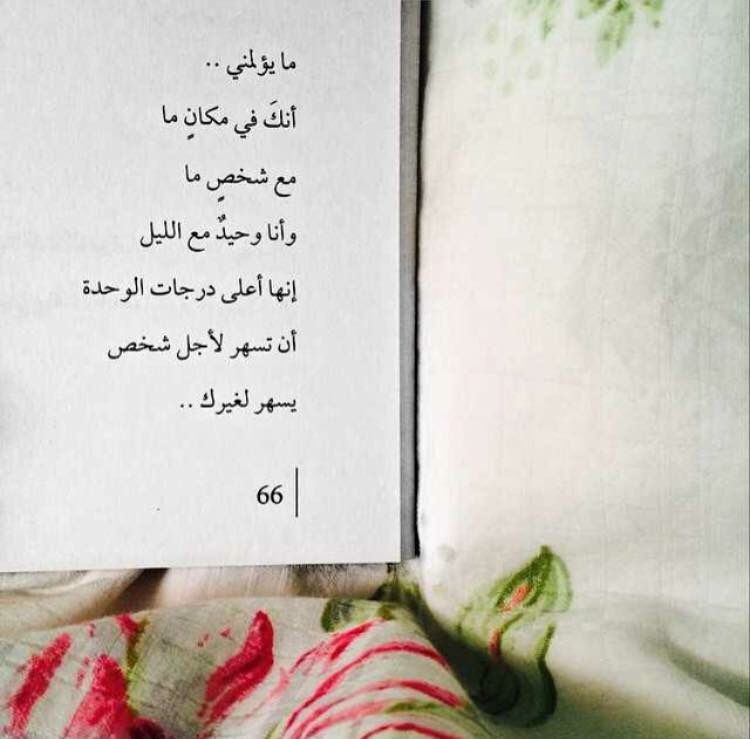 ما يؤلمني ..
أنكَ في مكانٍ ما
مع شخصٍ ما
وأنا وحيدٌ مع الليل
إنها أعلى درجات الوحدة
أن تسهر لأجل شخص
يسهر لغيرك ..
66